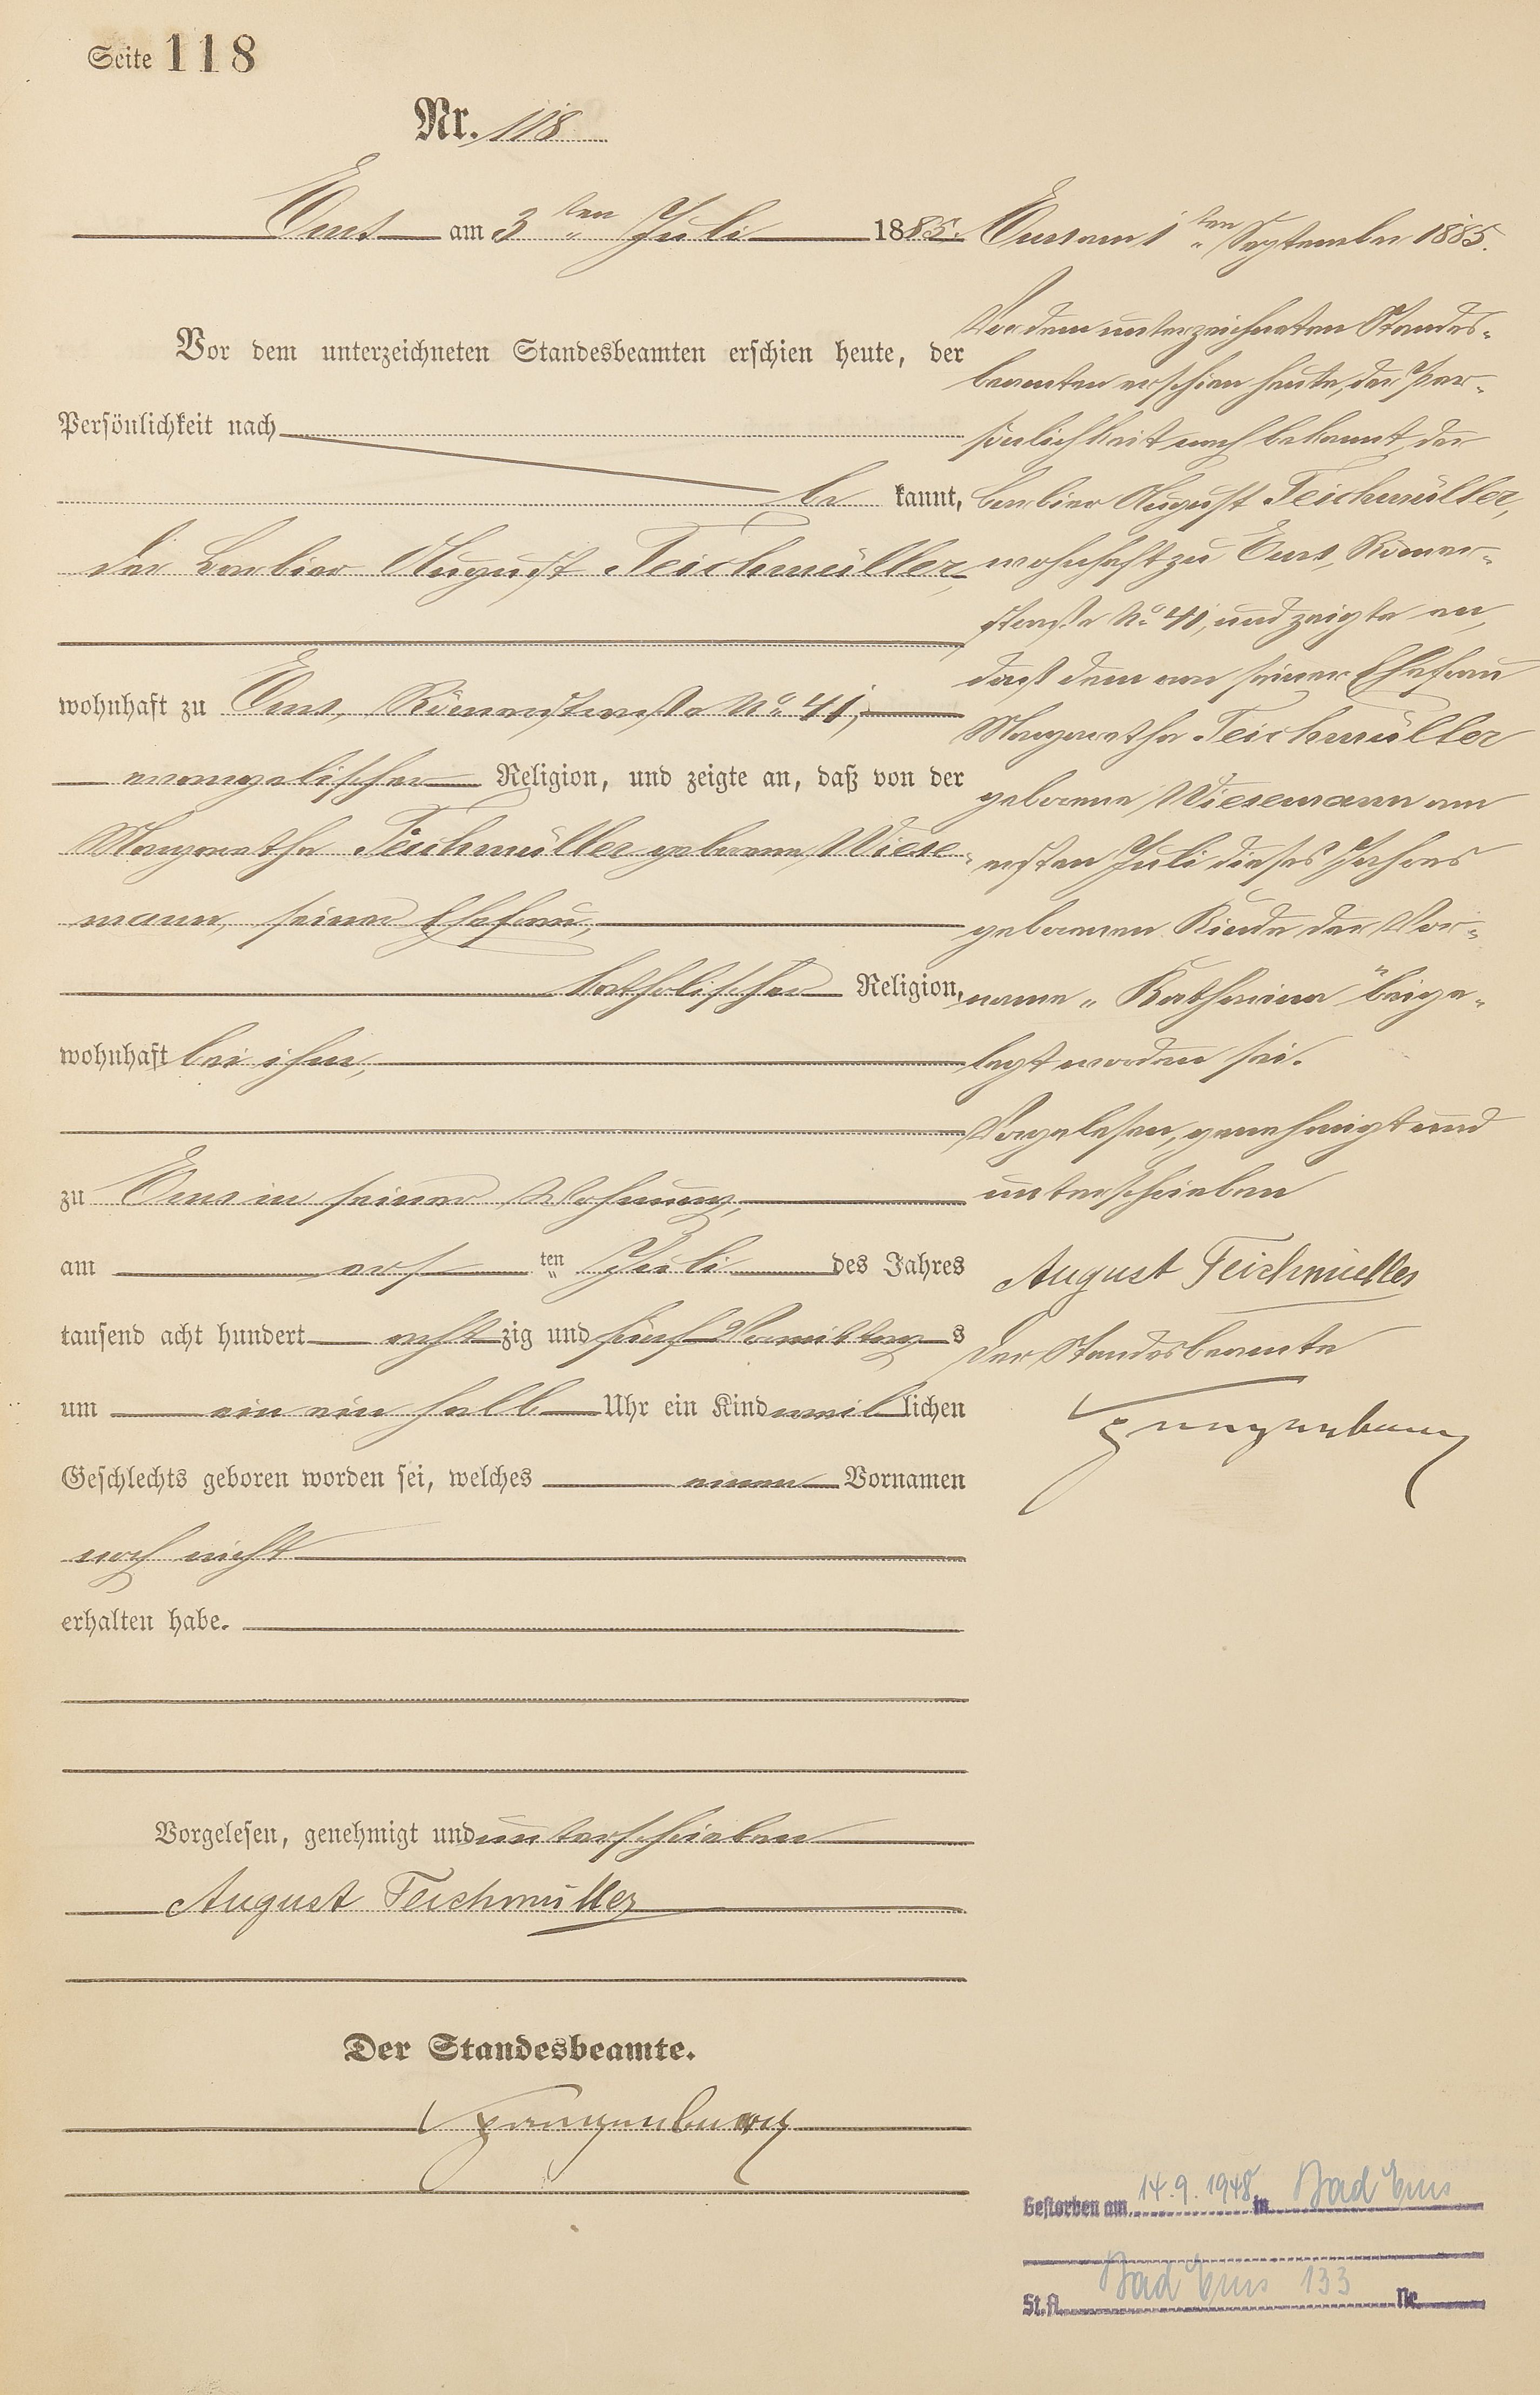 Seite 118
Nr. 118
Ems am 3ten Juli 1885.
Vor dem unterzeichneten Standesbeamten erschien heute, der
Persönlichkeit nach
bekannt,
der Barbier August Teichmüller,
wohnhaft zu Ems, Römerstraße No. 41,
evangelischer Religion, und zeigte an, daß von der
Margaretha Teichmüller geborene Wiese-
mann, seiner Ehefrau,
katholischer Religion,
wohnhaft bei ihm,
zu Ems in seiner Wohnung,
am ersten Juli des Jahres
tausend acht hundert achtzig und fünf Vormittags
um ein ein halb Uhr ein Kind weiblichen
Geschlechts geboren worden sei, welches einen Vornamen
noch nicht
erhalten habe.
Vorgelesen, genehmigt und unterschrieben
August Teichmüller
Der Standesbeamte.
Ems am 1ten September 1885.
Vor dem unterzeichneten Standes-
beamten erschien heute, der Per-
sönlichkeit nach bekannt, der
Barbier August Teichmüller,
wohnhaft zu Ems, Römer-
straße No. 41, und zeigte an,
daß dem von seiner Ehefrau
Margaretha Teichmüller
geborene Wiesemann am
ersten Juli dieses Jahres
geborenen Kinde der Vor-
name "Katharina" beige-
legt worden sei.
Vorgelesen, genehmigt und
unterschrieben
August Teichmüller
Der Standesbeamte
Gestorben am 14.9.1948 in Bad Ems
St.A. Bad Ems 133 Nr.